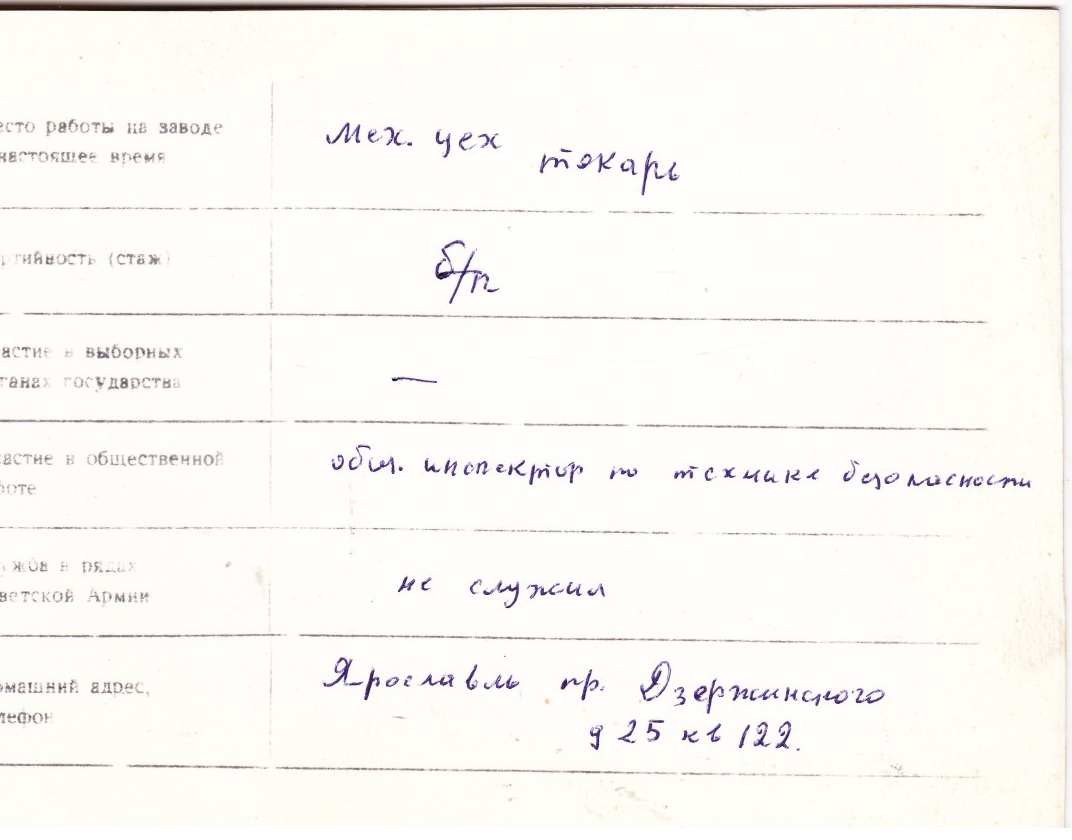 есто работы на заводе
настоящее время
Мех. цех
токарь
ртийность (стаж)
б/п
астие в выборных
ганах государства
—
астие в общественной
боте
общ. инспектор по технике безопасности
ужба в рядах
ветской Армии
не служил
омашний адрес,
лефон
Ярославль пр. Дзержинского
д 25 кв 122.